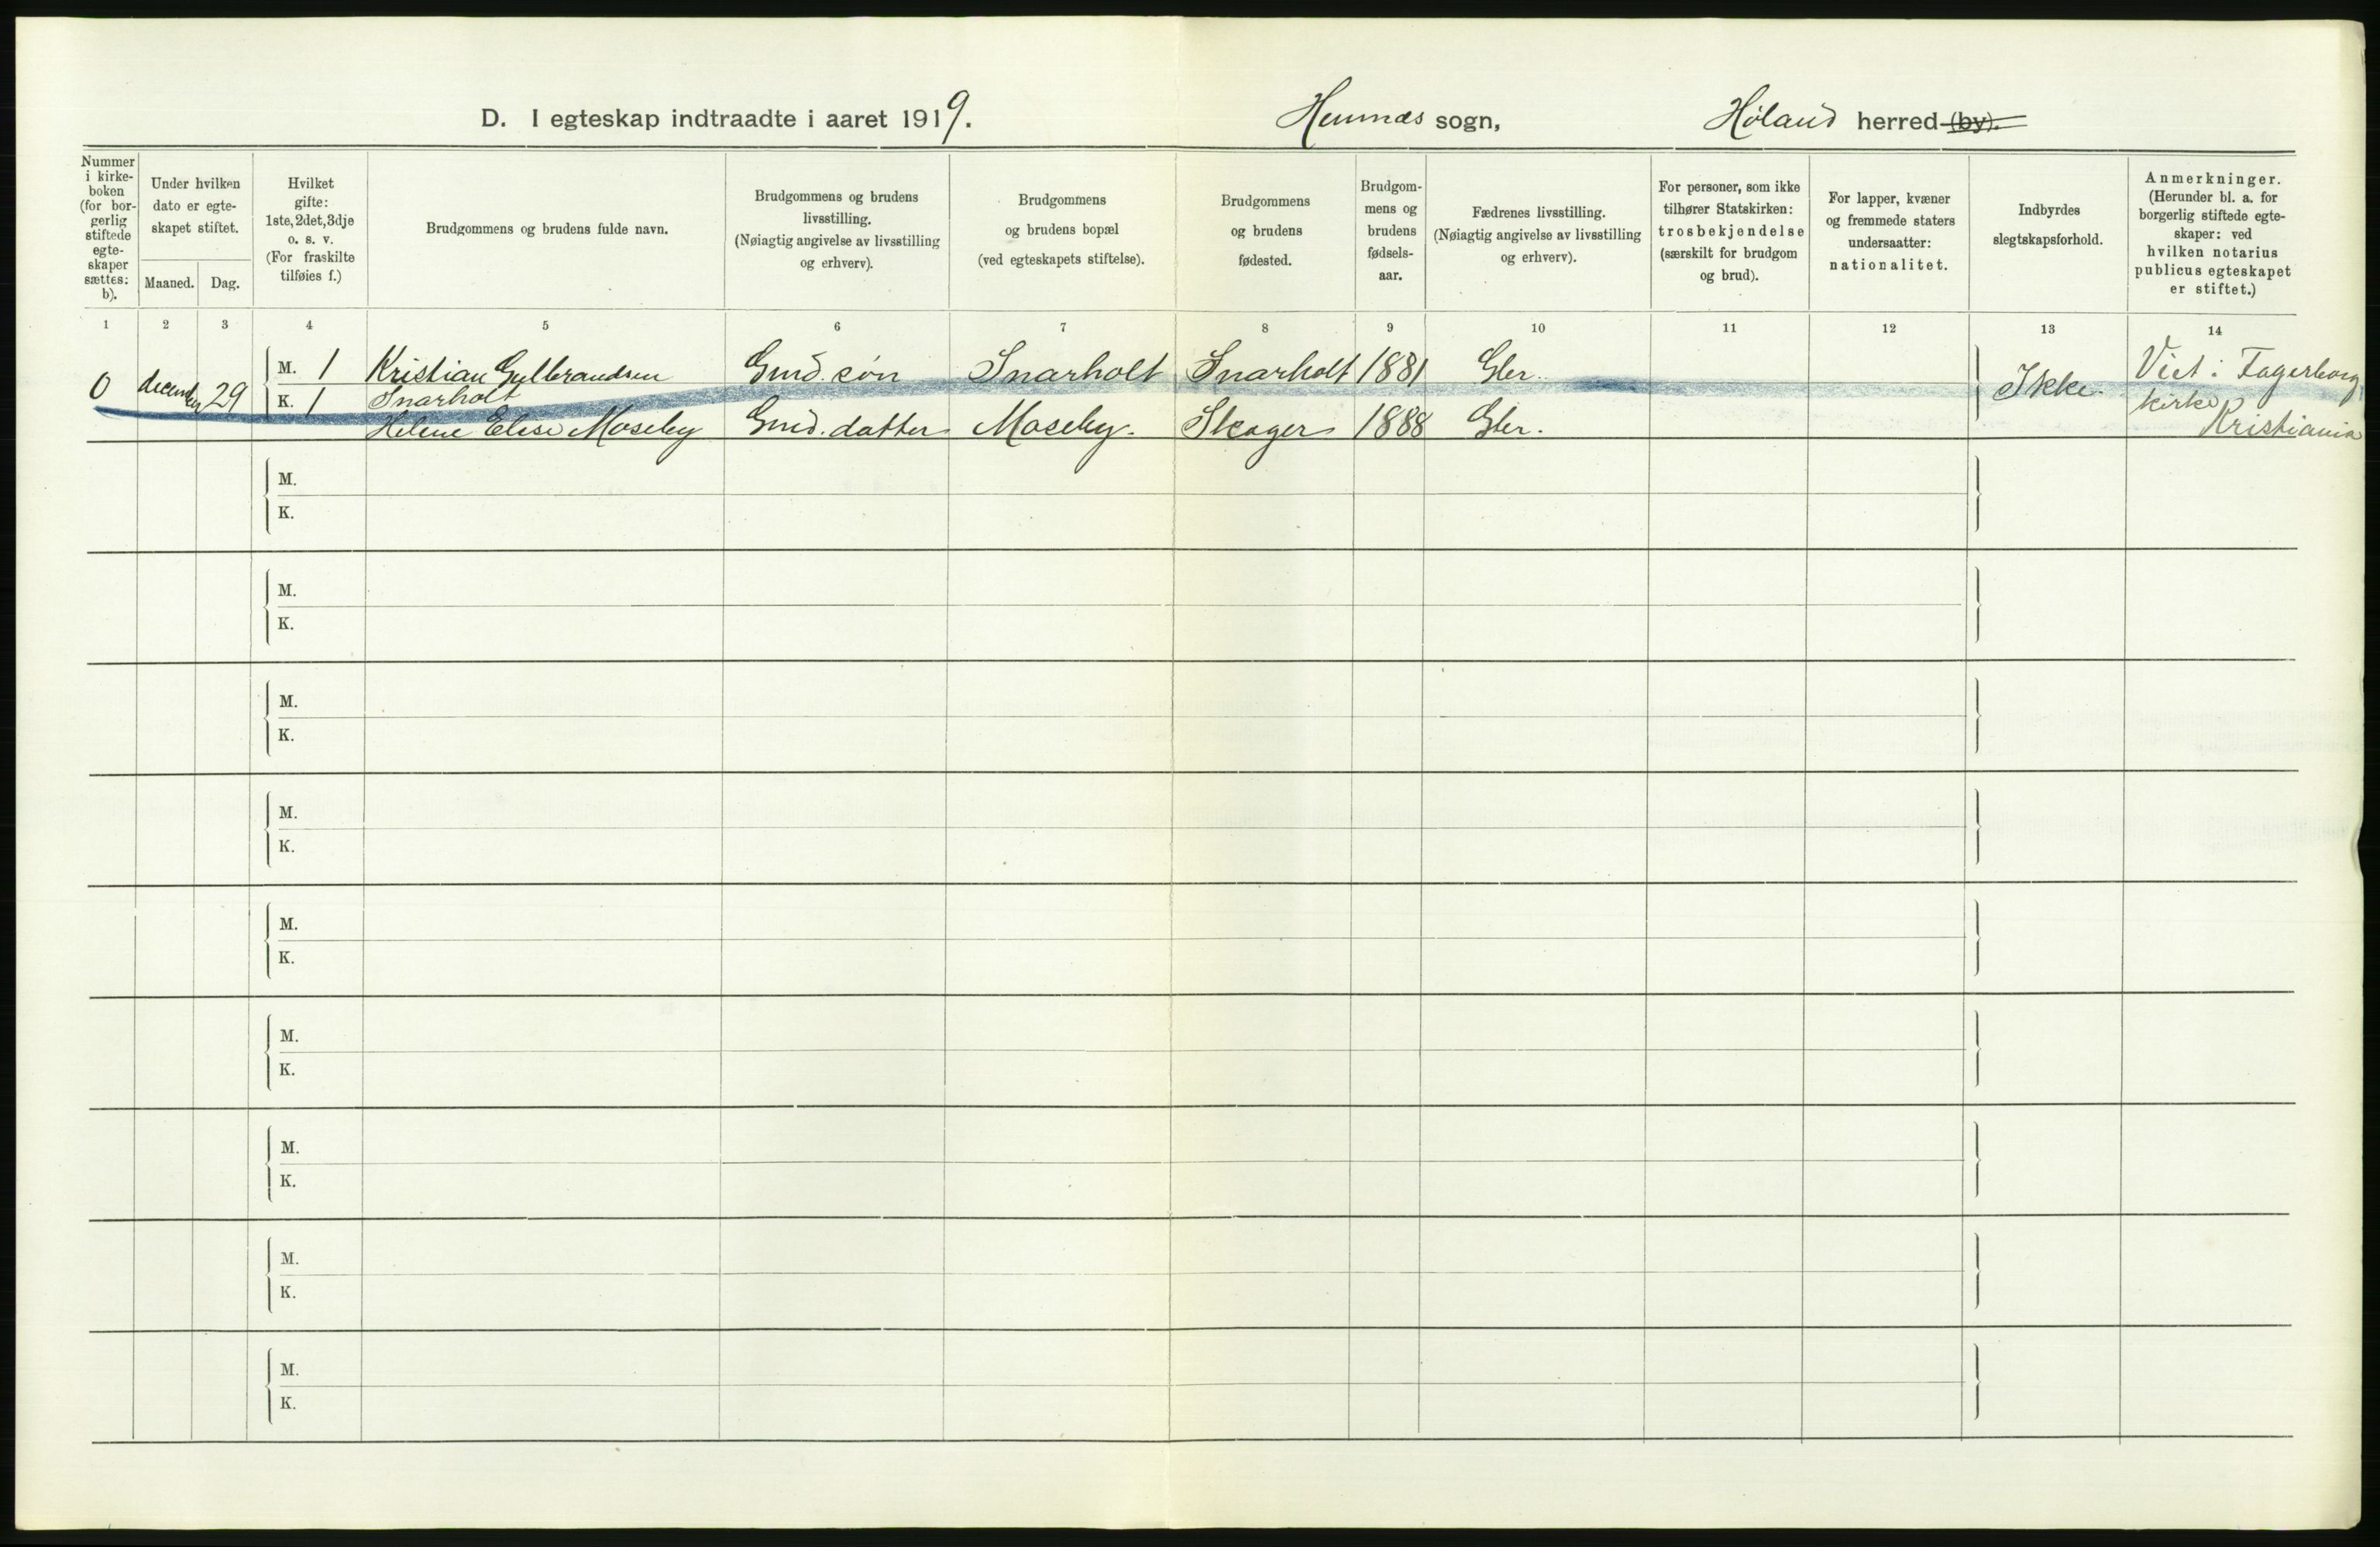 D. I egteskap indtraadte i aaret 1919. Hemnæs sogn, Høland herred (by).
Nummer i kirke-boken (for bor-gerlig stiftede egte-skaper sættes: b).
Under hvilken dato er egte-skapet stiftet.
Maaned. Dag.
Hvilket gifte: 1ste, 2det, 3dje o. s. v. (For fraskilte tilføies f.)
Brudgommens og brudens fulde navn.
Brudgommens og brudens livsstilling. (Nøiagtig angivelse av livsstilling og erhverv).
Brudgommens og brudens bopæl (ved egteskapets stiftelse).
Brudgommens og brudens fødested.
Brudgom-mens og brudens fødsels-aar.
Fædrenes livsstilling. (Nøiagtig angivelse av livsstilling og erhverv).
For personer, som ikke tilhører Statskirken: trosbekjendelse (særskilt for brudgom og brud).
For lapper, kvæner og fremmede staters undersaatter: nationalitet.
Indbyrdes slegtskapsforhold.
Anmerkninger. (Herunder bl. a. for borgerlig stiftede egte-skaper: ved hvilken notarius publicus egteskapet er stiftet.)
1 2 3 4 5 6 7 8 9 10 11 12 13 14
0 december 29 M. 1 Kristian Gulbrandsen Gmd. søn Snarholt Snarholt 1881 Gbr. Ikke. Viet i Fagerborg
K. 1 Snarholt kirke
Helene Elise Moseby Gmd. datter Moseby. Skoger 1888 Gbr. Kristiania
M.
K.
M.
K.
M.
K.
M.
K.
M.
K.
M.
K.
M.
K.
M.
K.
M.
K.